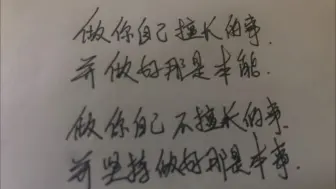 做你自己擅长的事.
并做好那是本能.
做你自己不擅长的事.
并坚持做好那是本事.